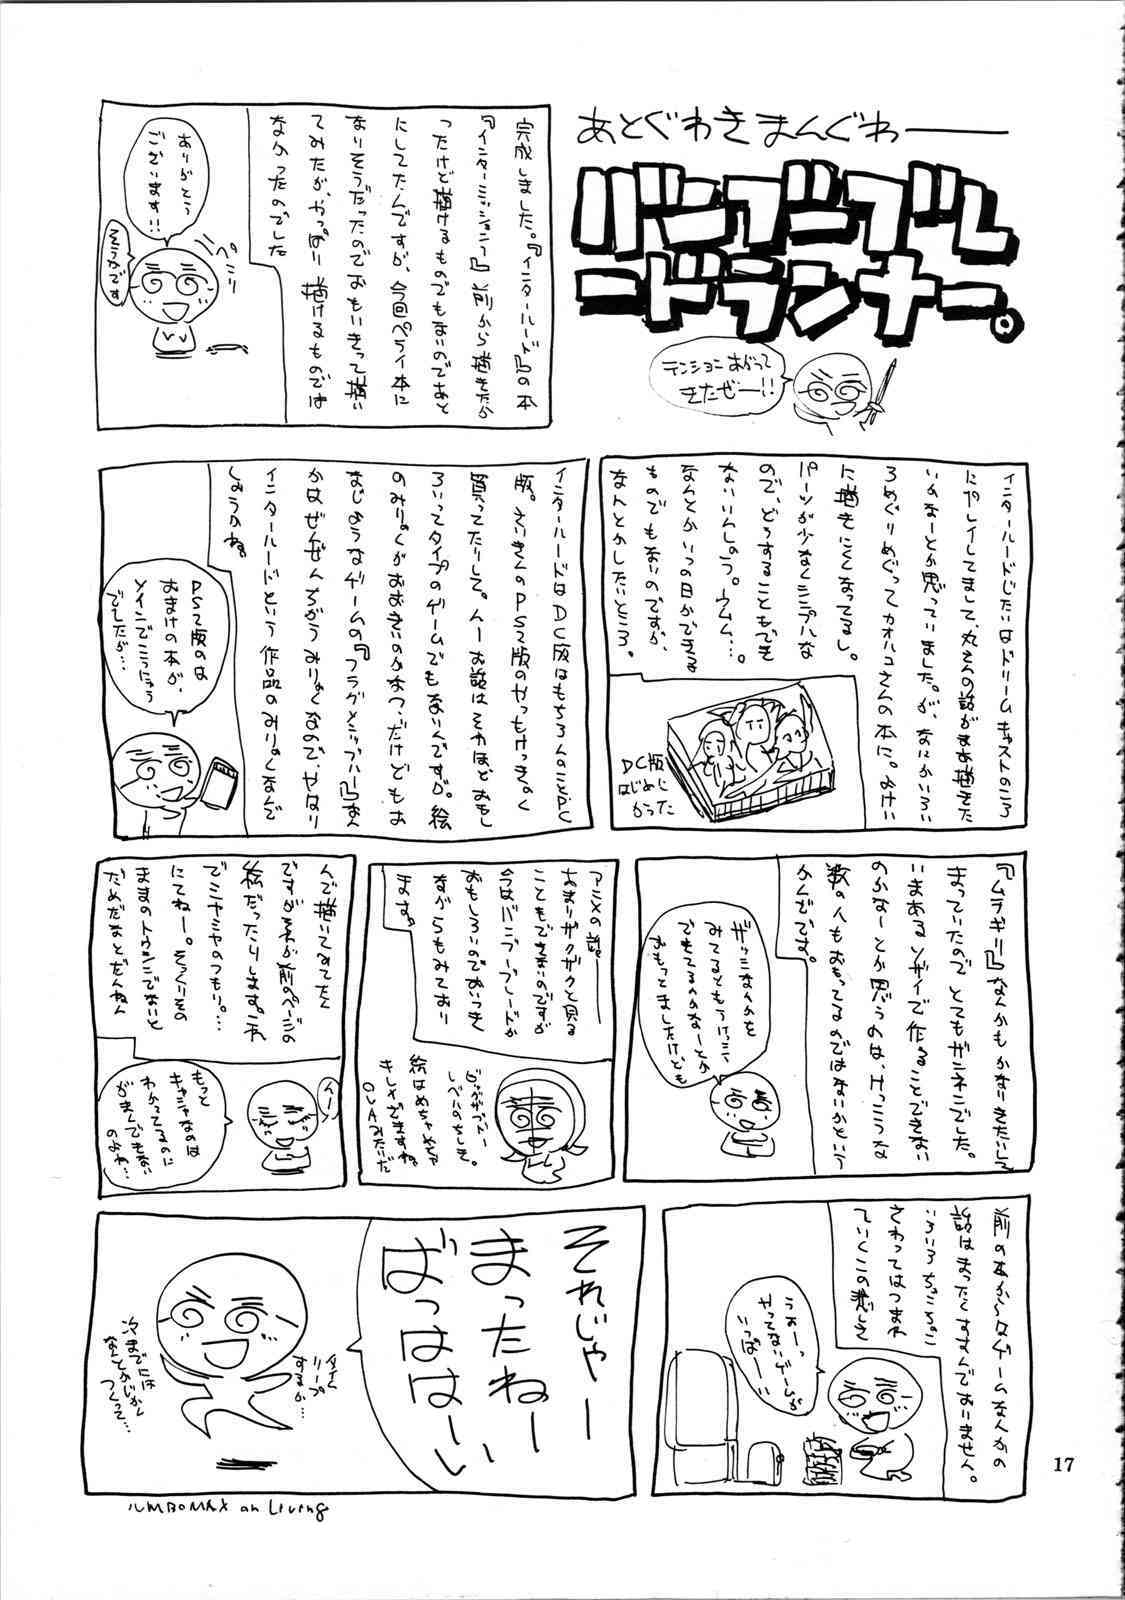 あとぐわきまんぐわー
バンブーブレ
ードランナー。
テンションあがって
きたぜー!!
完成しました。『インタールード』の本
『インターミッション』前から描きたか
ったけど描けるものでもないのであと
にしてたんですが、今回ペライ本に
なりそうだったのでおもいきって描い
てみたが、やっぱり描けるものでは
なかったのでした
ありがとう
ございます!!
ペこり
そうかです
インタールードじたいはドリームキャストのころ
にプレイしてまして、丸さんの話がまあ描きた
いかなーとか思っていました。が、なにかいろい
ろめぐりめぐってカオルコさんの本に。よけい
に描きにくくなってるし。
パーツが少なくシンプルな
ので、どうすることもでき
ないいんしょう。ウムム…。
なんとかいつの日かできる
ものでもないのですが、
なんとかしたいところ。
DC版
はじめに
かった
インタールードはDC版はもちろんのことPC
版。さいきんのPS2版のやつもけっきょく
買ってたりして。んーお話はそれほどおもし
ろいってタイプのゲームでもないんですが。絵
のみりょくがおおきいのかなっ、だけどもお
なじようなゲームの『フラグメンツブルー』なん
かはぜんぜんちがうみりょくなので、やはり
インタールードという作品のみりょくなんで
しょうかね。
PS2版のは
おまけの本が、
メインでこうにゅう
でしたが…
『ムラギリ』なんかもかなりきたいして
まっていたのでとてもザンネンでした。
いまあるソザイで作ることできない
のかなーとか思うのは、けっこうな
数の人もおもってるのではないかという
かんじです。
ギッシなんかを
みてるともうけっこう
できてるんかなーとか
おもってましたけども
アニメの話ー
あまりガクガクと見る
こともできないのですが
今はバンブーブレードが
おもしろいのでおいつき
ながらもみており
ます。
絵はめちゃめちゃ
きれいですね。
OVAみたいだ
んで描いてみてたん
ですがそれが前のページの
絵だったりします。これ
でミヤミヤのつもり。…
にてねー。そっくりその
ままのトウシンでないと
だめだなとだんねん
んー
もっと
キャシャなのは
わかってるのに
がまんできない
のよね…
前の本からはゲームなんかの
話はまったくすすんでおりません。
いろいろちょこちょこ
さわってはつまれ
ていくこの悲しさ
うおーっ
やってないゲームが
いっぱーい
それじゃー
まったねー
ばっははーい
タイム
リープ
するか…
次までには
なんとかじかん
つくって…
17